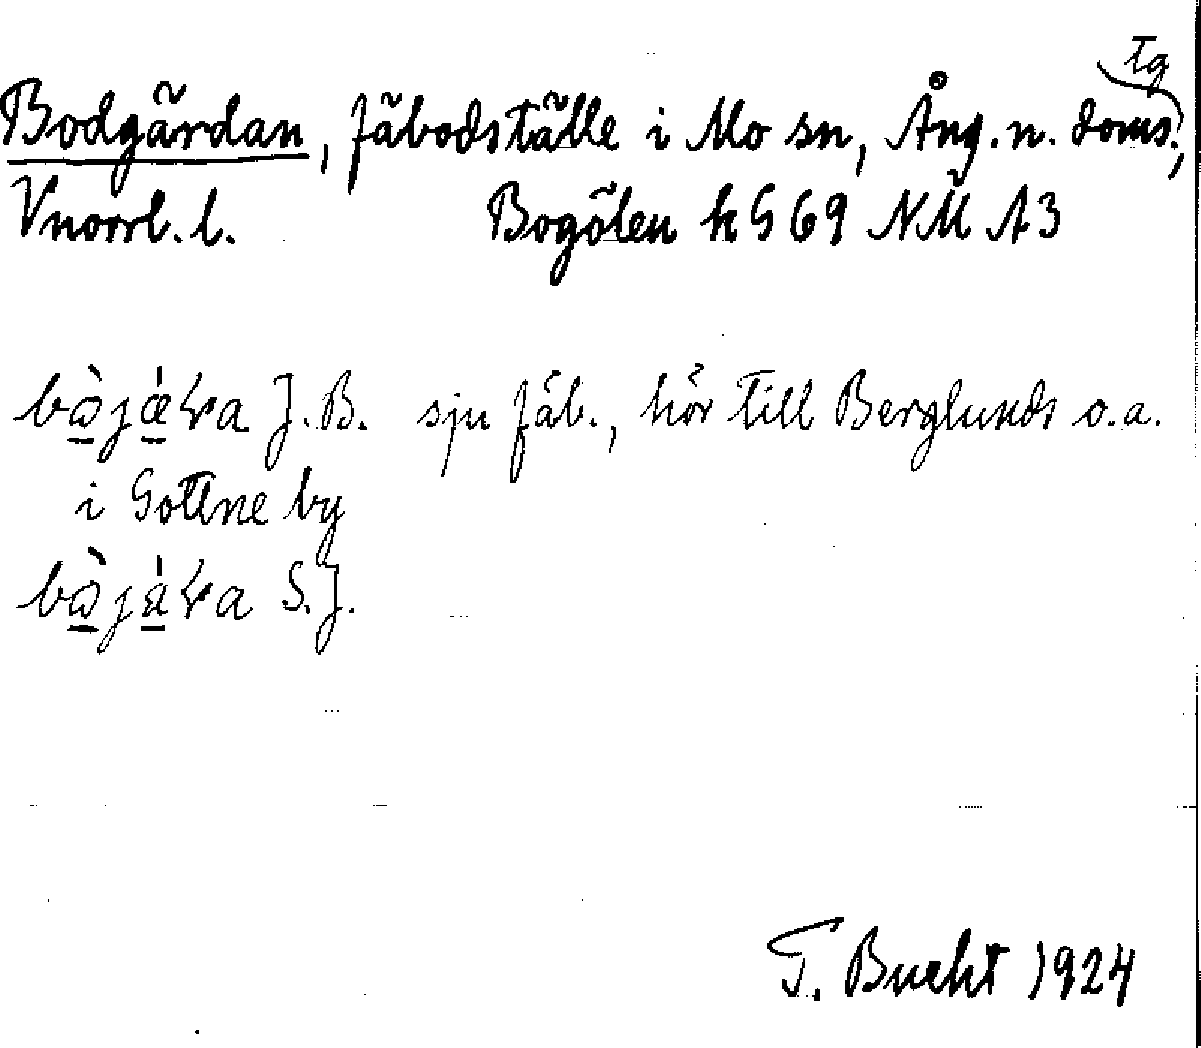 Bodgärdan, fäbodställe i Mo sn, Ång. n. doms., tg
Vnorrl. l. Bogölen k G 69 NM A3
J. B. sju fäb., hör till Berglunds o.a.
i Gottne by
S. J.
T. Bucht 1924